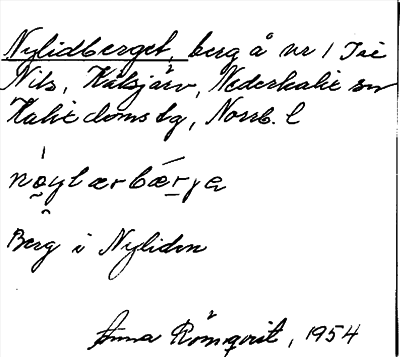 Nylidberget, berg å nr 1 Isi
Nils, Kälsjärv, Nederkalix sn
Kalix domsag, Norrb. l
Berg i Nyliden
Anna Römqvist, 1954